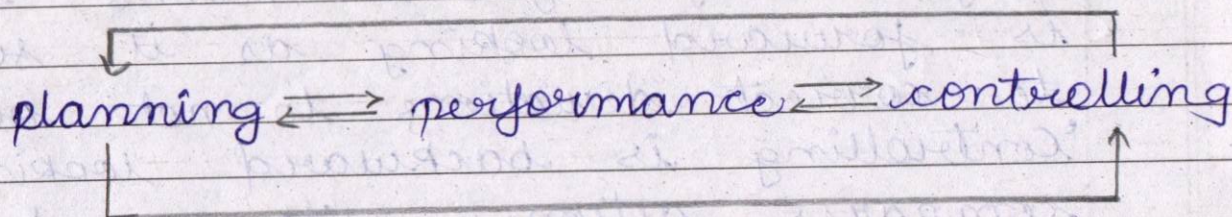 planning ⇌ performance ⇌ controlling